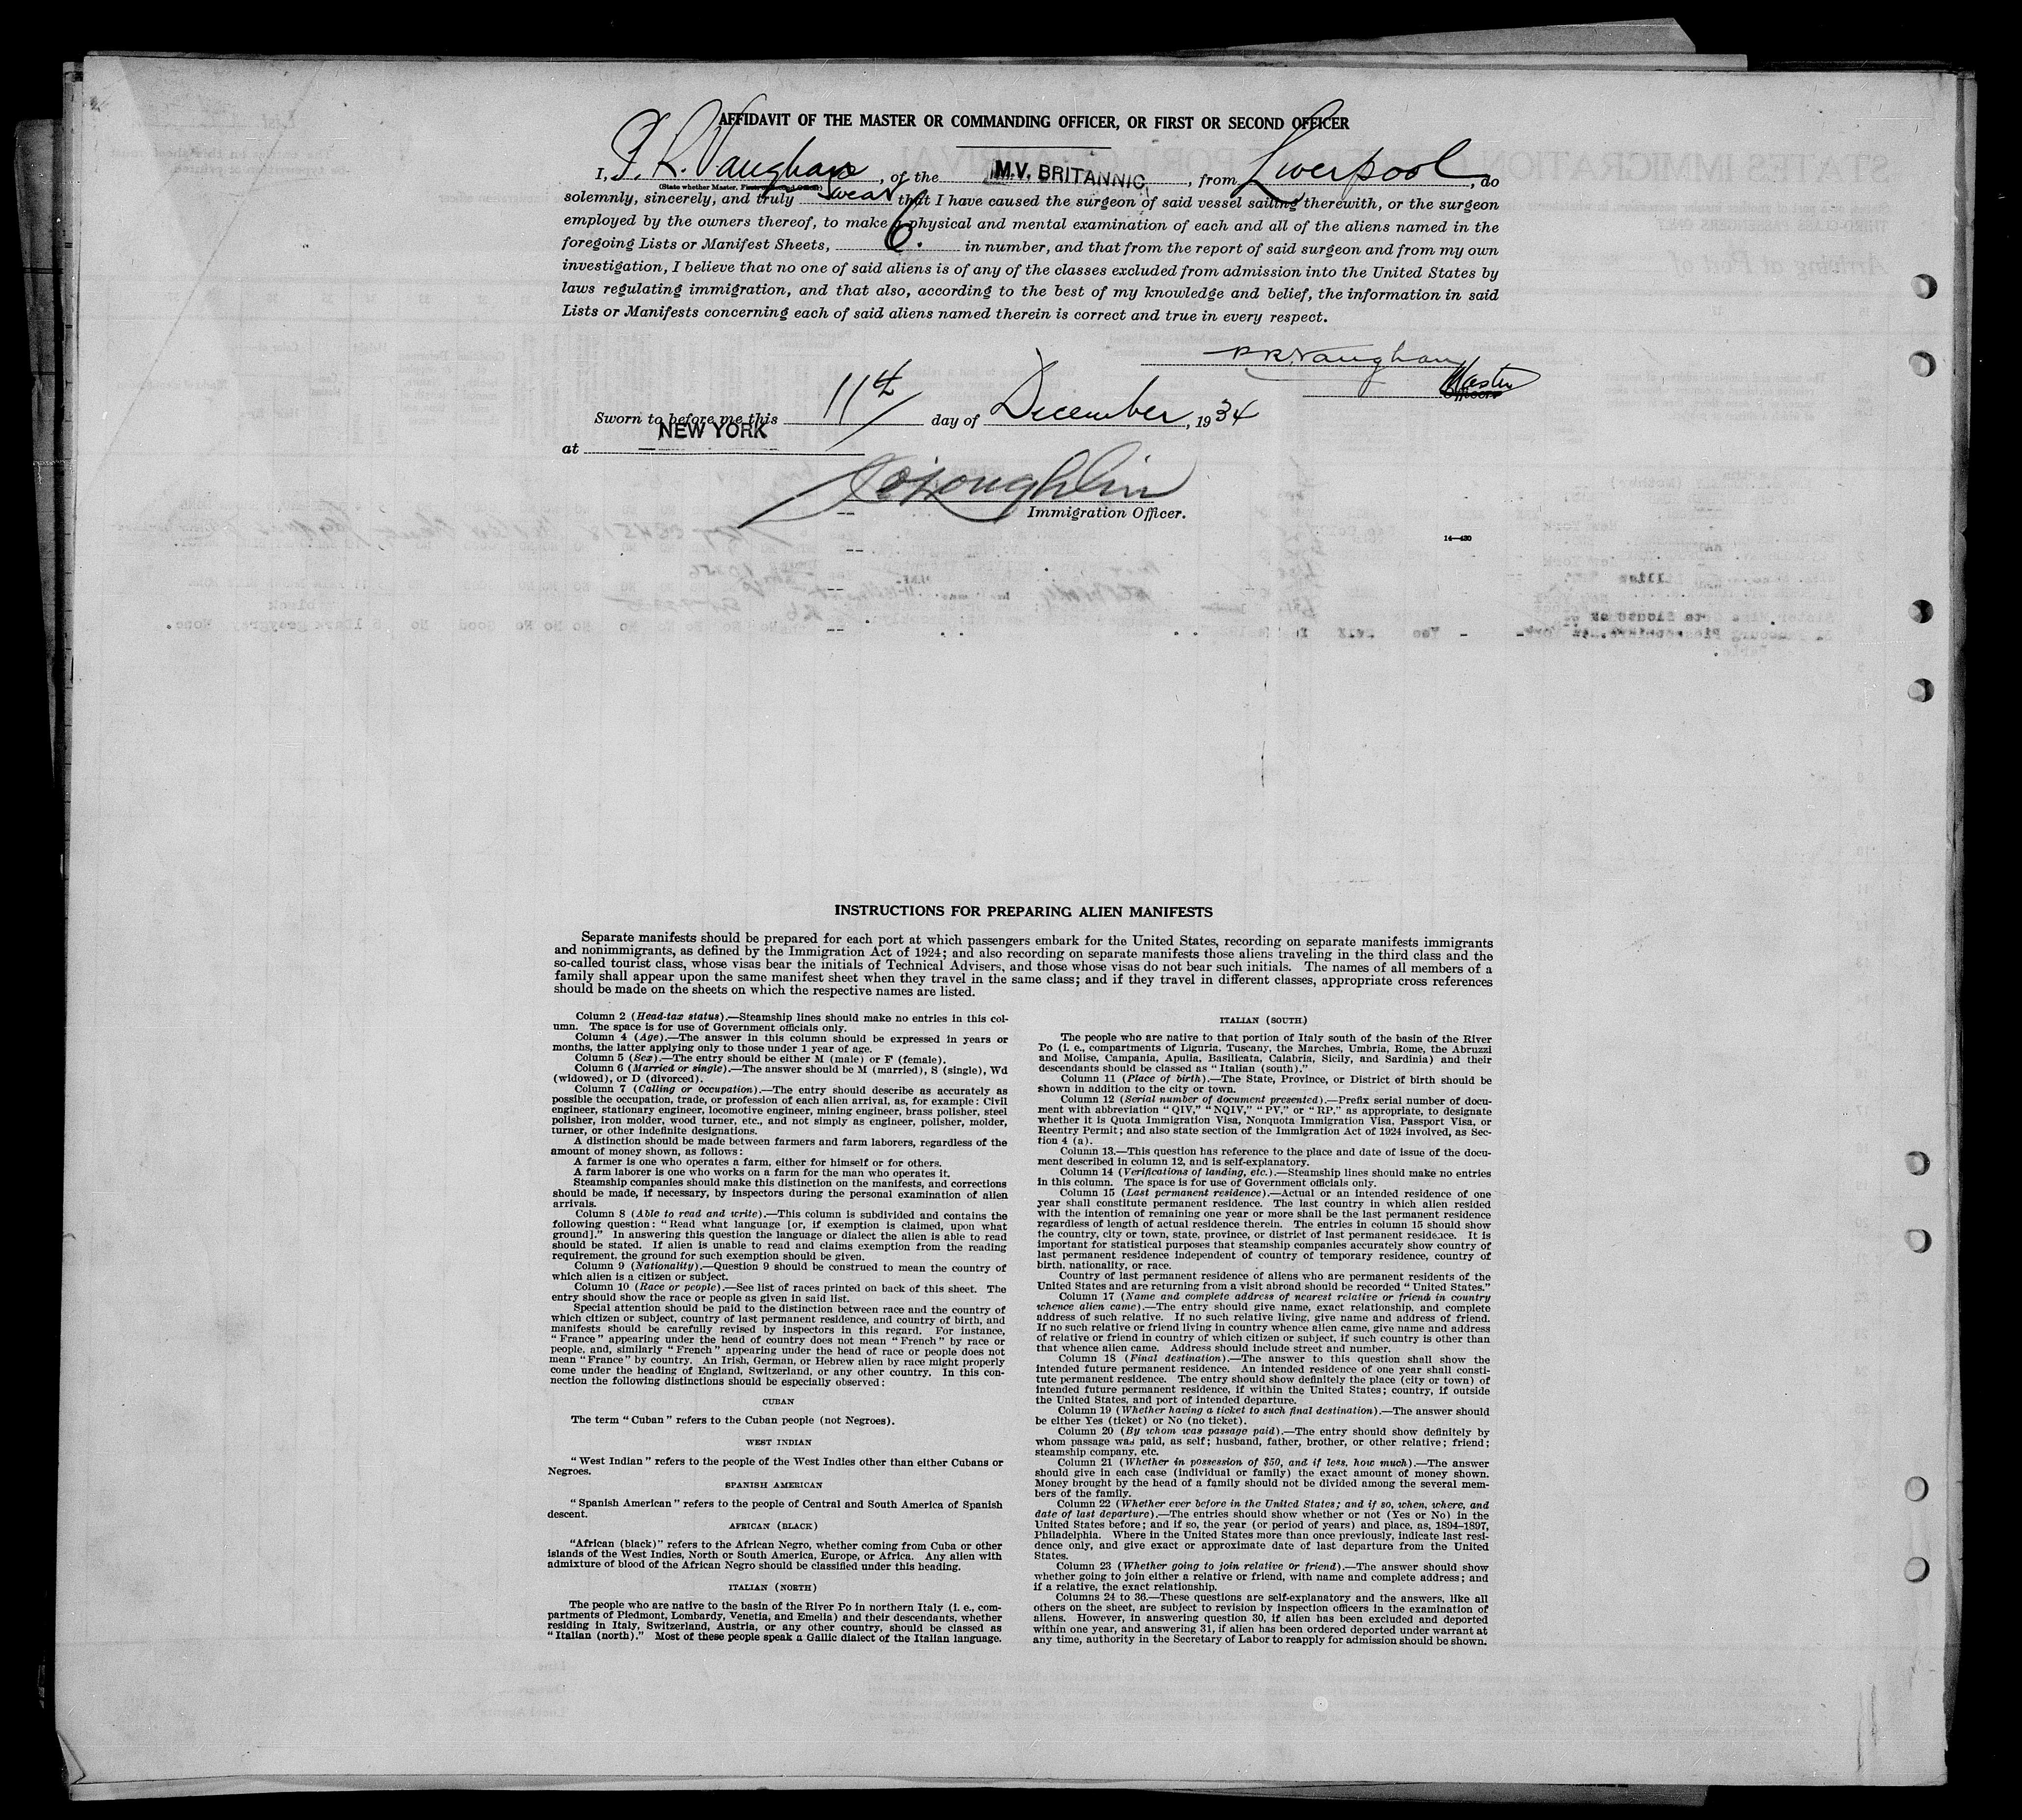 AFFIDAVIT OF THE MASTER OR COMMANDING OFFICER, OR FIRST OR SECOND OFFICER
I, P. R. Vaughan, of the M.V. BRITANNIC, from Liverpool, do
(State whether Master, First or Second Officer)
solemnly, sincerely, and truly Swear that I have caused the surgeon of said vessel sailing therewith, or the surgeon
employed by the owners thereof, to make a physical and mental examination of each and all of the aliens named in the
foregoing Lists or Manifest Sheets, 6. in number, and that from the report of said surgeon and from my own
investigation, I believe that no one of said aliens is of any of the classes excluded from admission into the United States by
laws regulating immigration, and that also, according to the best of my knowledge and belief, the information in said
Lists or Manifests concerning each of said aliens named therein is correct and true in every respect.
P R Vaughan
Master
Officer.
Sworn to before me this 11th day of December, 1934
at NEW YORK
O'Loughlin
Immigration Officer.
14—430
INSTRUCTIONS FOR PREPARING ALIEN MANIFESTS
Separate manifests should be prepared for each port at which passengers embark for the United States, recording on separate manifests immigrants
and nonimmigrants, as defined by the Immigration Act of 1924; and also recording on separate manifests those aliens traveling in the third class and the
so-called tourist class, whose visas bear the initials of Technical Advisers, and those whose visas do not bear such initials. The names of all members of a
family shall appear upon the same manifest sheet when they travel in the same class; and if they travel in different classes, appropriate cross references
should be made on the sheets on which the respective names are listed.
Column 2 (Head-tax status).—Steamship lines should make no entries in this col-
umn. The space is for use of Government officials only.
Column 4 (Age).—The answer in this column should be expressed in years or
months, the latter applying only to those under 1 year of age.
Column 5 (Sex).—The entry should be either M (male) or F (female).
Column 6 (Married or single).—The answer should be M (married), S (single), Wd
(widowed), or D (divorced).
Column 7 (Calling or occupation).—The entry should describe as accurately as
possible the occupation, trade, or profession of each alien arrival, as, for example: Civil
engineer, stationary engineer, locomotive engineer, mining engineer, brass polisher, steel
polisher, iron molder, wood turner, etc., and not simply as engineer, polisher, molder,
turner, or other indefinite designations.
A distinction should be made between farmers and farm laborers, regardless of the
amount of money shown, as follows:
A farmer is one who operates a farm, either for himself or for others.
A farm laborer is one who works on a farm for the man who operates it.
Steamship companies should make this distinction on the manifests, and corrections
should be made, if necessary, by inspectors during the personal examination of alien
arrivals.
Column 8 (Able to read and write).—This column is subdivided and contains the
following question: "Read what language [or, if exemption is claimed, upon what
ground]." In answering this question the language or dialect the alien is able to read
should be stated. If alien is unable to read and claims exemption from the reading
requirement, the ground for such exemption should be given.
Column 9 (Nationality).—Question 9 should be construed to mean the country of
which alien is a citizen or subject.
Column 10 (Race or people).—See list of races printed on back of this sheet. The
entry should show the race or people as given in said list.
Special attention should be paid to the distinction between race and the country of
which citizen or subject, country of last permanent residence, and country of birth, and
manifests should be carefully revised by inspectors in this regard. For instance,
"France" appearing under the head of country does not mean "French" by race or
people, and, similarly "French" appearing under the head of race or people does not
mean "France" by country. An Irish, German, or Hebrew alien by race might properly
come under the heading of England, Switzerland, or any other country. In this con-
nection the following distinctions should be especially observed:
CUBAN
The term "Cuban" refers to the Cuban people (not Negroes).
WEST INDIAN
"West Indian" refers to the people of the West Indies other than either Cubans or
Negroes.
SPANISH AMERICAN
"Spanish American" refers to the people of Central and South America of Spanish
descent.
AFRICAN (BLACK)
"African (black)" refers to the African Negro, whether coming from Cuba or other
islands of the West Indies, North or South America, Europe, or Africa. Any alien with
admixture of blood of the African Negro should be classified under this heading.
ITALIAN (NORTH)
The people who are native to the basin of the River Po in northern Italy (i. e., com-
partments of Piedmont, Lombardy, Venetia, and Emelia) and their descendants, whether
residing in Italy, Switzerland, Austria, or any other country, should be classed as
"Italian (north)." Most of these people speak a Gallic dialect of the Italian language.
ITALIAN (SOUTH)
The people who are native to that portion of Italy south of the basin of the River
Po (i. e., compartments of Liguria, Tuscany, the Marches, Umbria, Rome, the Abruzzi
and Molise, Campania, Apulia, Basilicata, Calabria, Sicily, and Sardinia) and their
descendants should be classed as "Italian (south)."
Column 11 (Place of birth).—The State, Province, or District of birth should be
shown in addition to the city or town.
Column 12 (Serial number of document presented).—Prefix serial number of docu-
ment with abbreviation "QIV," "NQIV," "PV," or "RP," as appropriate, to designate
whether it is Quota Immigration Visa, Nonquota Immigration Visa, Passport Visa, or
Reentry Permit; and also state section of the Immigration Act of 1924 involved, as Sec-
tion 4 (a).
Column 13.—This question has reference to the place and date of issue of the docu-
ment described in column 12, and is self-explanatory.
Column 14 (Verifications of landing, etc.).—Steamship lines should make no entries
in this column. The space is for use of Government officials only.
Column 15 (Last permanent residence).—Actual or an intended residence of one
year shall constitute permanent residence. The last country in which alien resided
with the intention of remaining one year or more shall be the last permanent residence
regardless of length of actual residence therein. The entries in column 15 should show
the country, city or town, state, province, or district of last permanent residence. It is
important for statistical purposes that steamship companies accurately show country of
last permanent residence independent of country of temporary residence, country of
birth, nationality, or race.
Country of last permanent residence of aliens who are permanent residents of the
United States and are returning from a visit abroad should be recorded "United States."
Column 17 (Name and complete address of nearest relative or friend in country
whence alien came).—The entry should give name, exact relationship, and complete
address of such relative. If no such relative living, give name and address of friend.
If no such relative or friend living in country whence alien came, give name and address
of relative or friend in country of which citizen or subject, if such country is other than
that whence alien came. Address should include street and number.
Column 18 (Final destination).—The answer to this question shall show the
intended future permanent residence. An intended residence of one year shall consti-
tute permanent residence. The entry should show definitely the place (city or town) of
intended future permanent residence, if within the United States; country, if outside
the United States, and port of intended departure.
Column 19 (Whether having a ticket to such final destination).—The answer should
be either Yes (ticket) or No (no ticket).
Column 20 (By whom was passage paid).—The entry should show definitely by
whom passage was paid, as self; husband, father, brother, or other relative; friend;
steamship company, etc.
Column 21 (Whether in possession of $50, and if less, how much).—The answer
should give in each case (individual or family) the exact amount of money shown.
Money brought by the head of a family should not be divided among the several mem-
bers of the family.
Column 22 (Whether ever before in the United States; and if so, when, where, and
date of last departure).—The entries should show whether or not (Yes or No) in the
United States before; and if so, the year (or period of years) and place, as, 1894–1897,
Philadelphia. Where in the United States more than once previously, indicate last resi-
dence only, and give exact or approximate date of last departure from the United
States.
Column 23 (Whether going to join relative or friend).—The answer should show
whether going to join either a relative or friend, with name and complete address; and
if a relative, the exact relationship.
Columns 24 to 36.—These questions are self-explanatory and the answers, like all
others on the sheet, are subject to revision by inspection officers in the examination of
aliens. However, in answering question 30, if alien has been excluded and deported
within one year, and answering 31, if alien has been ordered deported under warrant at
any time, authority in the Secretary of Labor to reapply for admission should be shown.